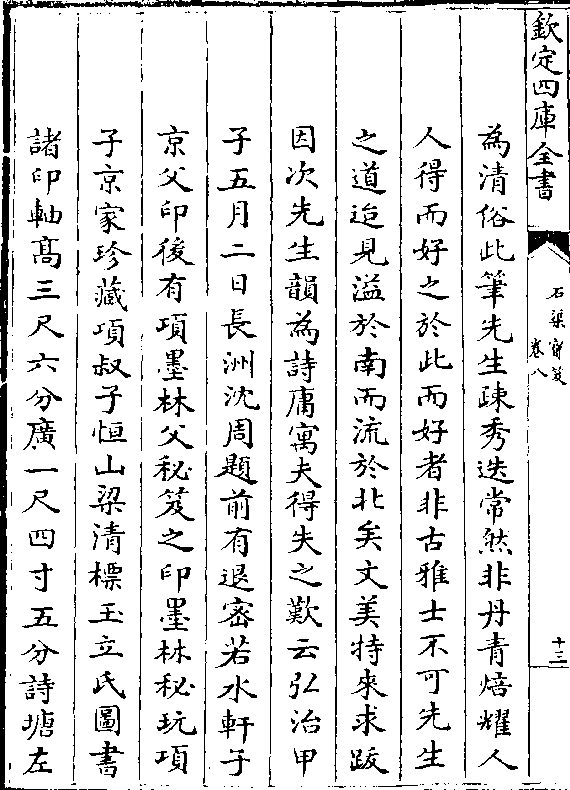 欽定四庫全書
石渠寳笈
卷八
十三
為清俗此筆先生疎秀迭常然非丹青焙耀人
人得而好之於此而好者非古雅士不可先生
之道迨見溢於南而流於北矣文美特來求跋
因次先生韻為詩庸寓夫得失之歎云弘治甲
子五月二日長洲沈周題前有退宻若水軒子
京父印後有項墨林父秘笈之印墨林秘玩項
子京家珍藏項叔子恒山梁清標玉立氏圖書
諸印軸髙三尺六分廣一尺四寸五分詩塘左